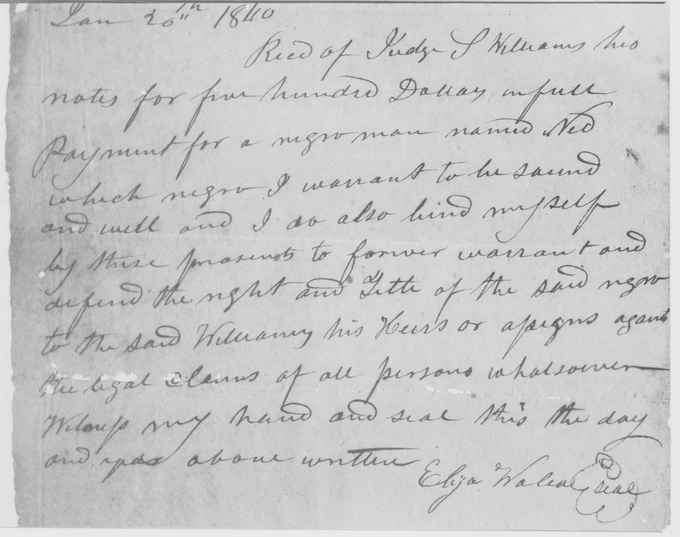 Jan 20th 1840
Recd of Judge S Williams his
notes for five hundred Dollars in full
Payment for a negro man named Ned
which negro I warrant to be sound
and well and I do also bind myself
by these presents to forever warrant and
defend the right and Title of the said negro
to the said Williams his Heirs or assigns against
the legal claims of all persons whatsoever
Witness my hand and seal this the day
and year above written
Eliza seal